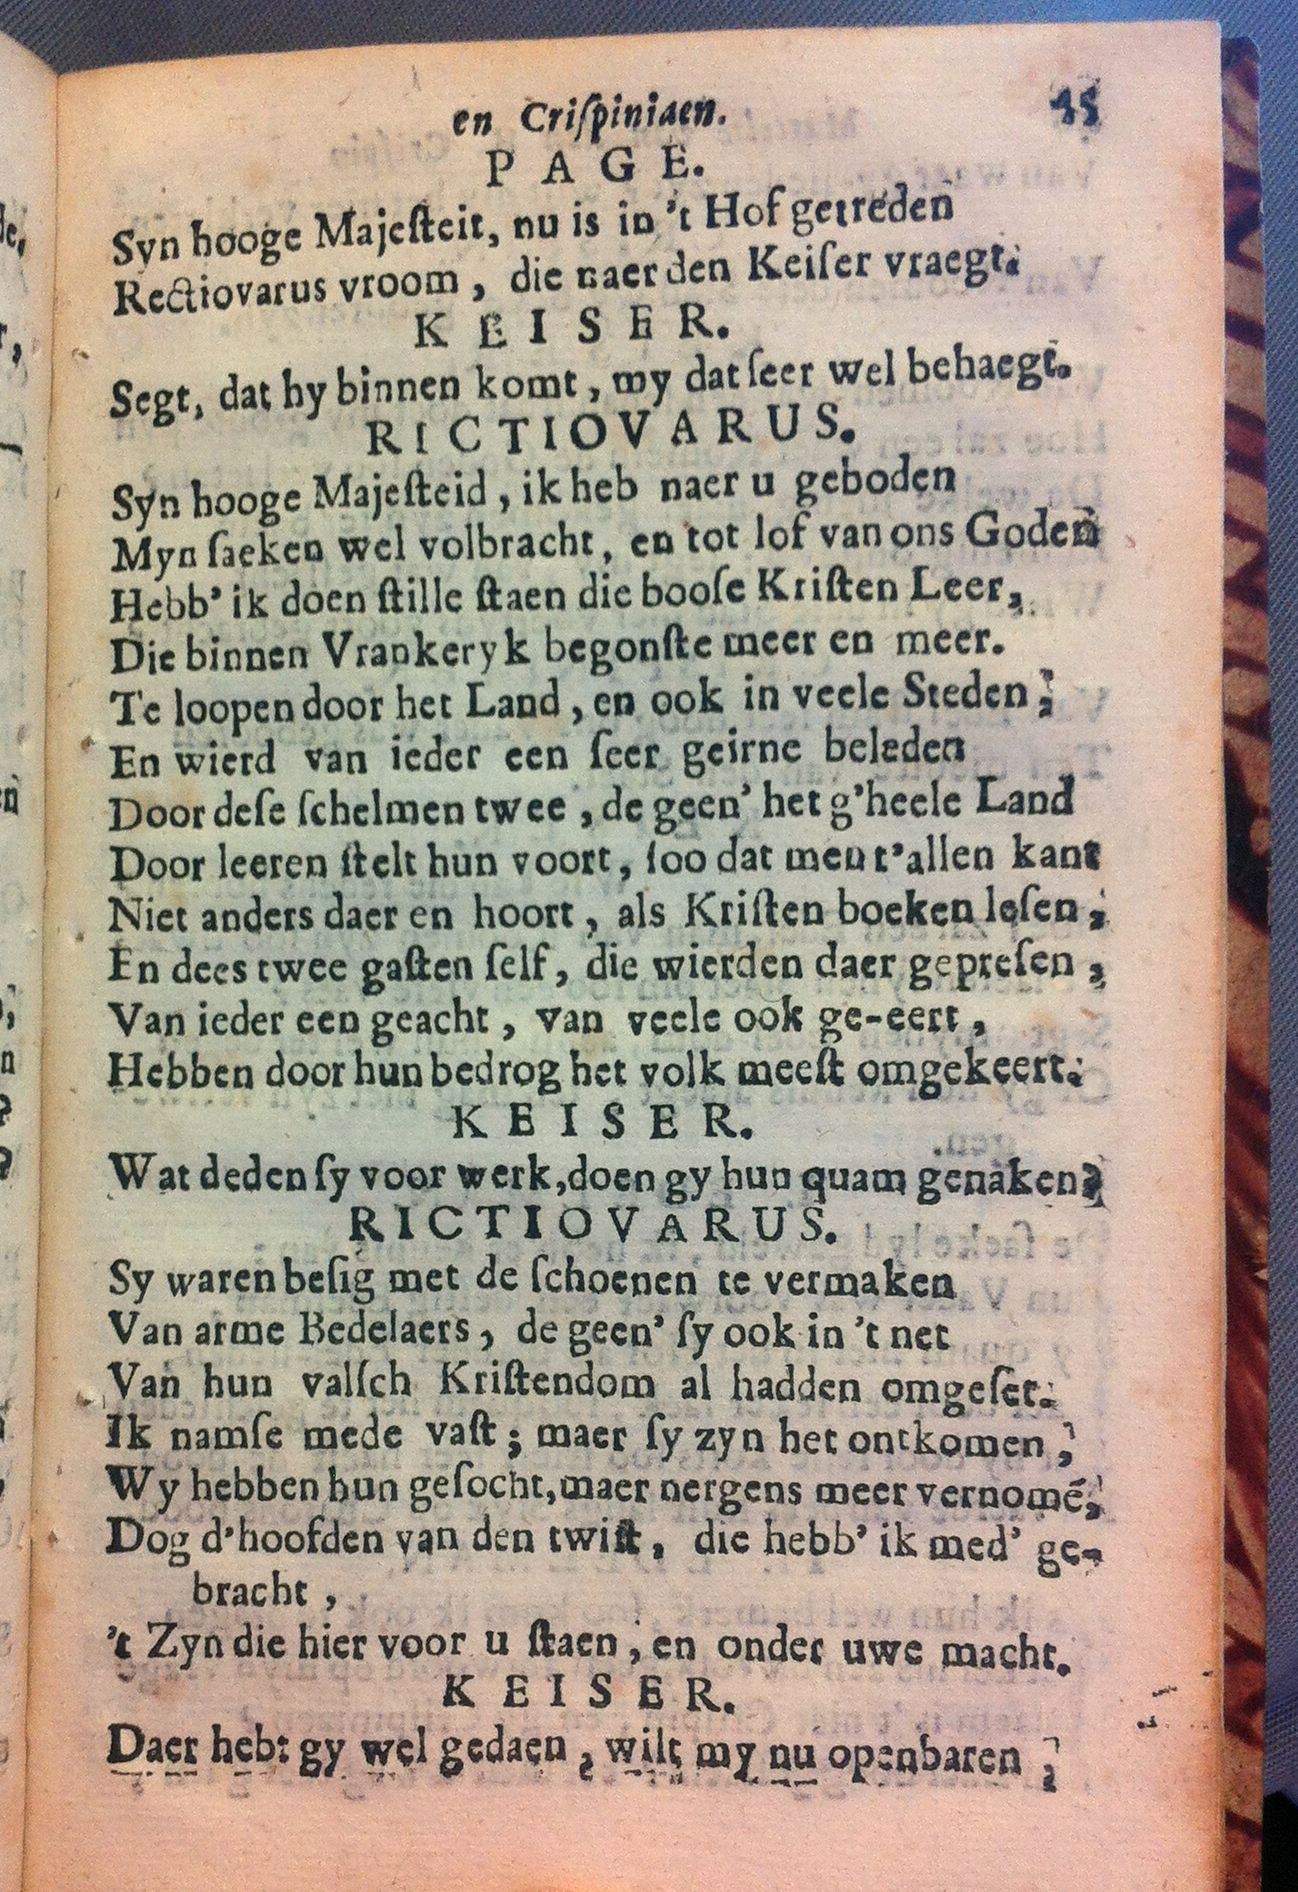 en Criſpiniaen. 45
PAGE.
Syn hooge Majeſteit, nu is in 't Hof getreden
Rectiovarus vroom, die naer den Keiſer vraegt.
KEISER.
Segt, dat hy binnen komt, my dat ſeer wel behaegt.
RICTIOVARUS.
Syn hooge Majeſteid, ik heb naer u geboden
Myn ſaeken wel volbracht, en tot lof van ons Goden
Hebb' ik doen ſtille ſtaen die booſe Kriſten Leer,
Die binnen Vrankeryk begonſte meer en meer.
Te loopen door het Land, en ook in veele Steden;
En wierd van ieder een ſeer geirne beleden
Door deſe ſchelmen twee, de geen' het g'heele Land
Door leeren ſtelt hun voort, ſoo dat men t'allen kant
Niet anders daer en hoort, als Kriſten boeken leſen;
En dees twee gaſten ſelf, die wierden daer gepreſen,
Van ieder een geacht, van veele ook ge-eert,
Hebben door hun bedrog het volk meeſt omgekeert.
KEISER.
Wat deden ſy voor werk, doen gy hun quam genaken?
RICTIOVARUS.
Sy waren beſig met de ſchoenen te vermaken
Van arme Bedelaers, de geen' ſy ook in 't net
Van hun valſch Kriſtendom al hadden omgeſet.
Ik namſe mede vaſt; maer ſy zyn het ontkomen,
Wy hebben hun geſocht, maer nergens meer vernomē,
Dog d'hoofden van den twiſt, die hebb' ik med' ge-
bracht,
't Zyn die hier voor u ſtaen, en onder uwe macht.
KEISER.
Daer hebt gy wel gedaen, wilt my nu openbaren;